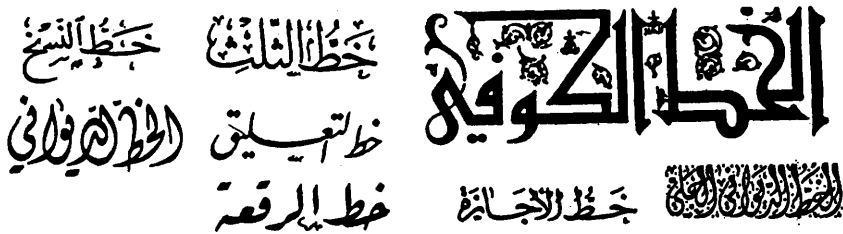 الخط الكوفي
خط الثلث
خط النسخ
خط التعليق
الخط الديواني
الخط الديواني الجلي
خط الاجازة
خط الرقعة